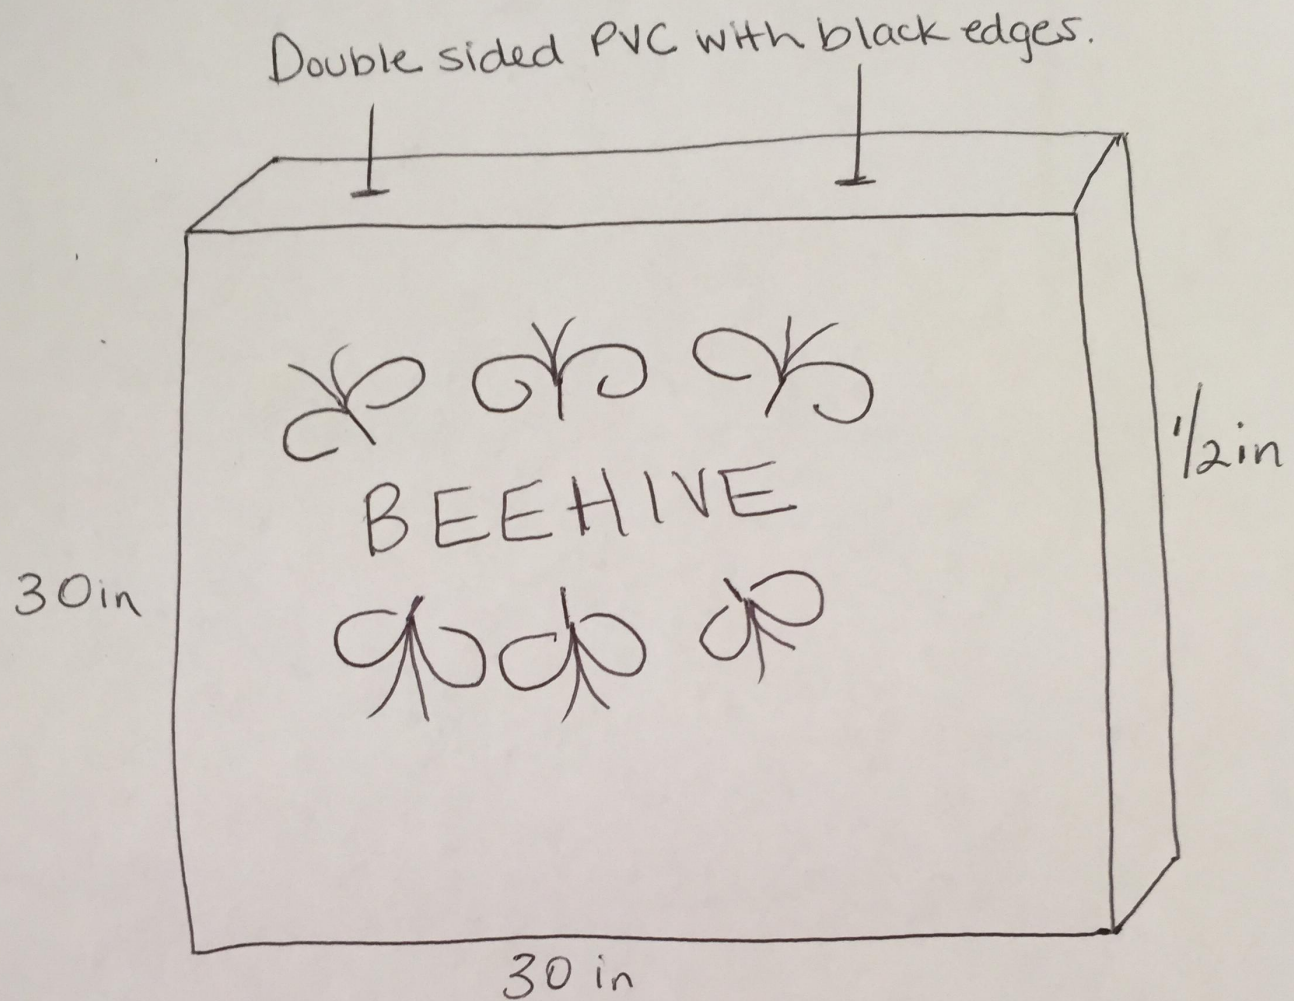 Double sided PVC with black edges.
BEEHIVE
1/2in
30in
30 in